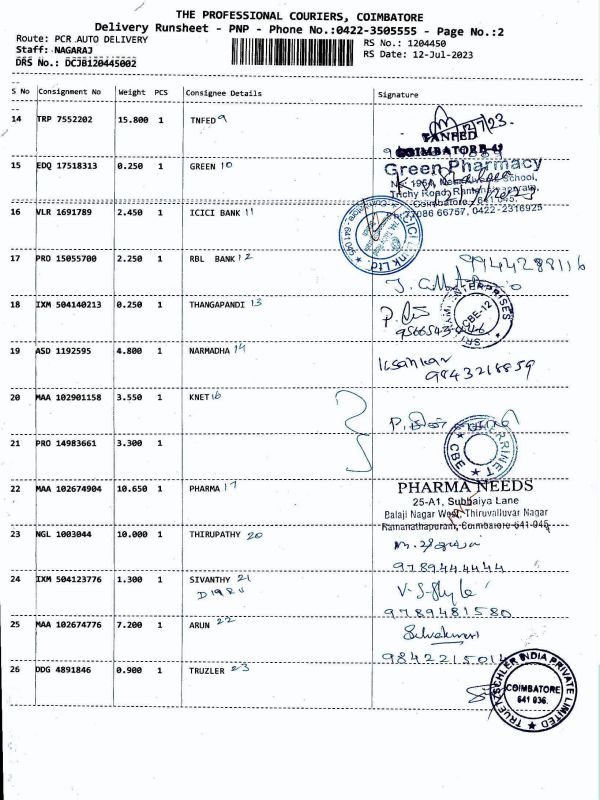 THE PROFESSIONAL COURIERS, COIMBATORE
Delivery Runsheet - PNP - Phone No.:0422-3505555 - Page No.:2
Route: PCR AUTO DELIVERY
RS No.: 1204450
Staff: NAGARAJ
RS Date: 12-Jul-2023
DRS No.: DCJB120445002
S No Consignment No Weight PCS Consignee Details Signature
14 TRP 7552202 15.800 1 TNFED 9
TANFED
COIMBATORE-41
15 EDQ 17518313 0.250 1 GREEN 10
Green Pharmacy
School,
Trichy Road, Ramanathapuram,
Coimbatore - 641 045.
Ph: 77086 66757, 0422-2316925
16 VLR 1691789 2.450 1 ICICI BANK 11
17 PRO 15055700 2.250 1 RBL BANK 12
9944288116
18 IXM 504140213 0.250 1 THANGAPANDI 13
ENTERPRISES
CBE-12
19 ASD 1192595 4.800 1 NARMADHA 14
9843218859
20 MAA 102901158 3.550 1 KNET 16
21 PRO 14983661 3.300 1
CBE
22 MAA 102674904 10.650 1 PHARMA 17
PHARMA NEEDS
25-A1, Subbaiya Lane
Balaji Nagar West, Thiruvalluvar Nagar
Ramanathapuram, Coimbatore-641 045
23 NGL 1003044 10.000 1 THIRUPATHY 20
9789444444
24 IXM 504123776 1.300 1 SIVANTHY 21
9789481580
25 MAA 102674776 7.200 1 ARUN 22
Selvakumar
26 DDG 4891846 0.900 1 TRUZLER 23
TRUETZSCHLER INDIA PRIVATE LIMITED
COIMBATORE
641 036.